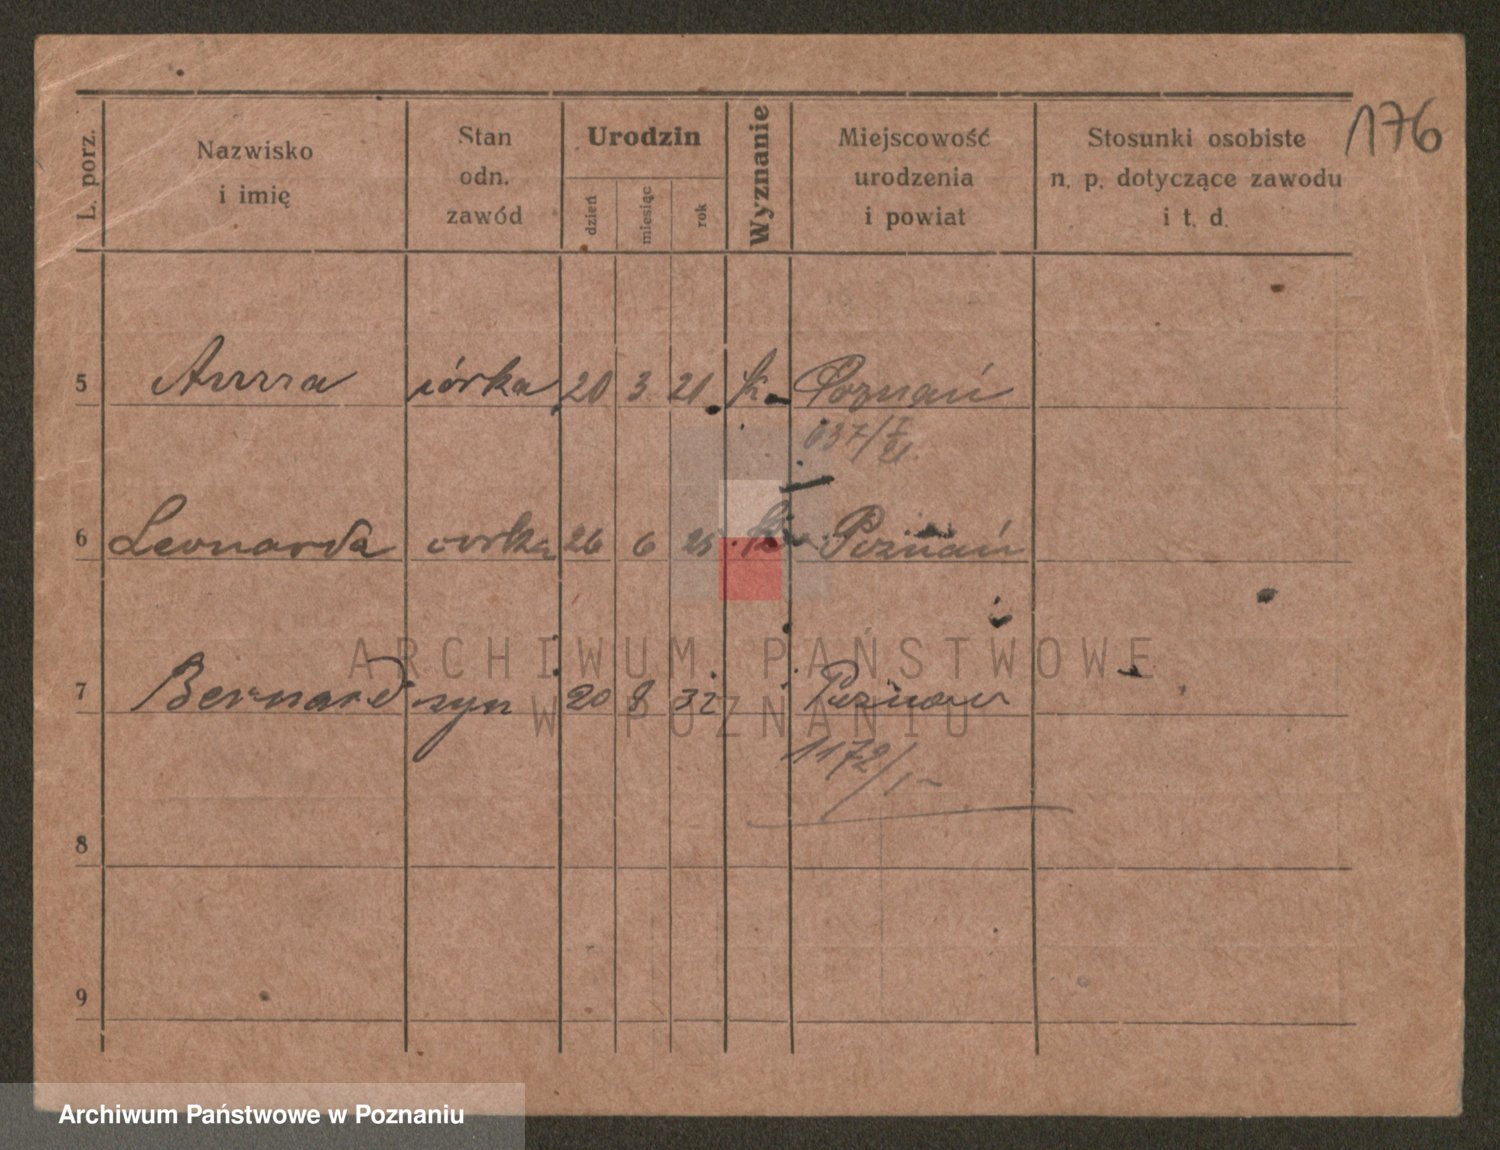 176
L. porz. Nazwisko i imię Stan odn. zawód Urodzin dzień miesiąc rok Wyznanie Miejscowość urodzenia i powiat Stosunki osobiste n. p. dotyczące zawodu i t. d.
5 Anna córka 20 3 21 k. Poznań
6 Leonarda córka 26 6 25 k. Poznań
ARCHIWUM PAŃSTWOWE
7 Bernard syn 20 8 32 Poznań
W POZNANIU
1172/
8
9
Archiwum Państwowe w Poznaniu